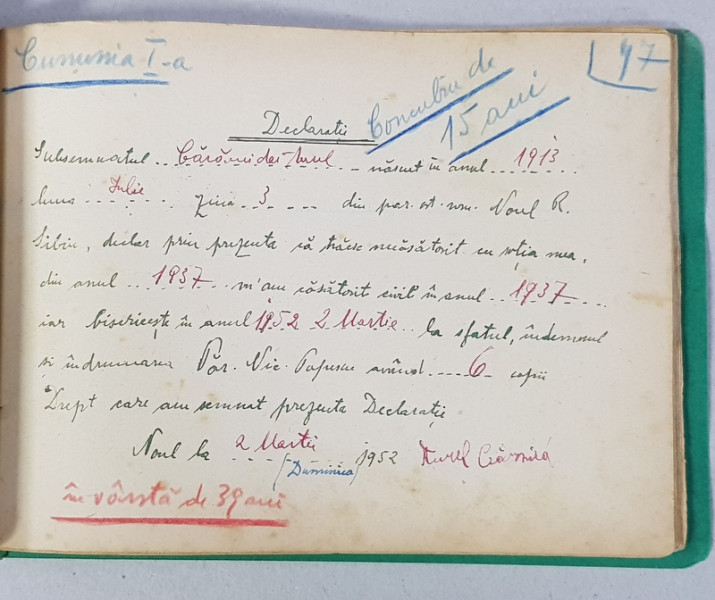 Cununia I-a
47
Concubin de
15 ani
Declarație
Subsemnatul .. Cărămidar Aurel ... născut în anul .... 1913
luna .. Iulie .... Ziua .. 3 ... din par. ort. rom. Noul R.
Sibiu, declar prin prezenta că trăesc necăsătorit cu soția mea,
din anul ... 1937 .. m'am căsătorit civil în anul .. 1937 ...
iar bisericește în anul 1952 2 Martie .. la sfatul, îndemnul
și îndrumarea Păr. Nic. Popescu având .... 6 copii
Drept care am semnat prezenta Declarație
Noul la 2 Martie 1952 Aurel
(Duminica)
în vârstă de 39 ani